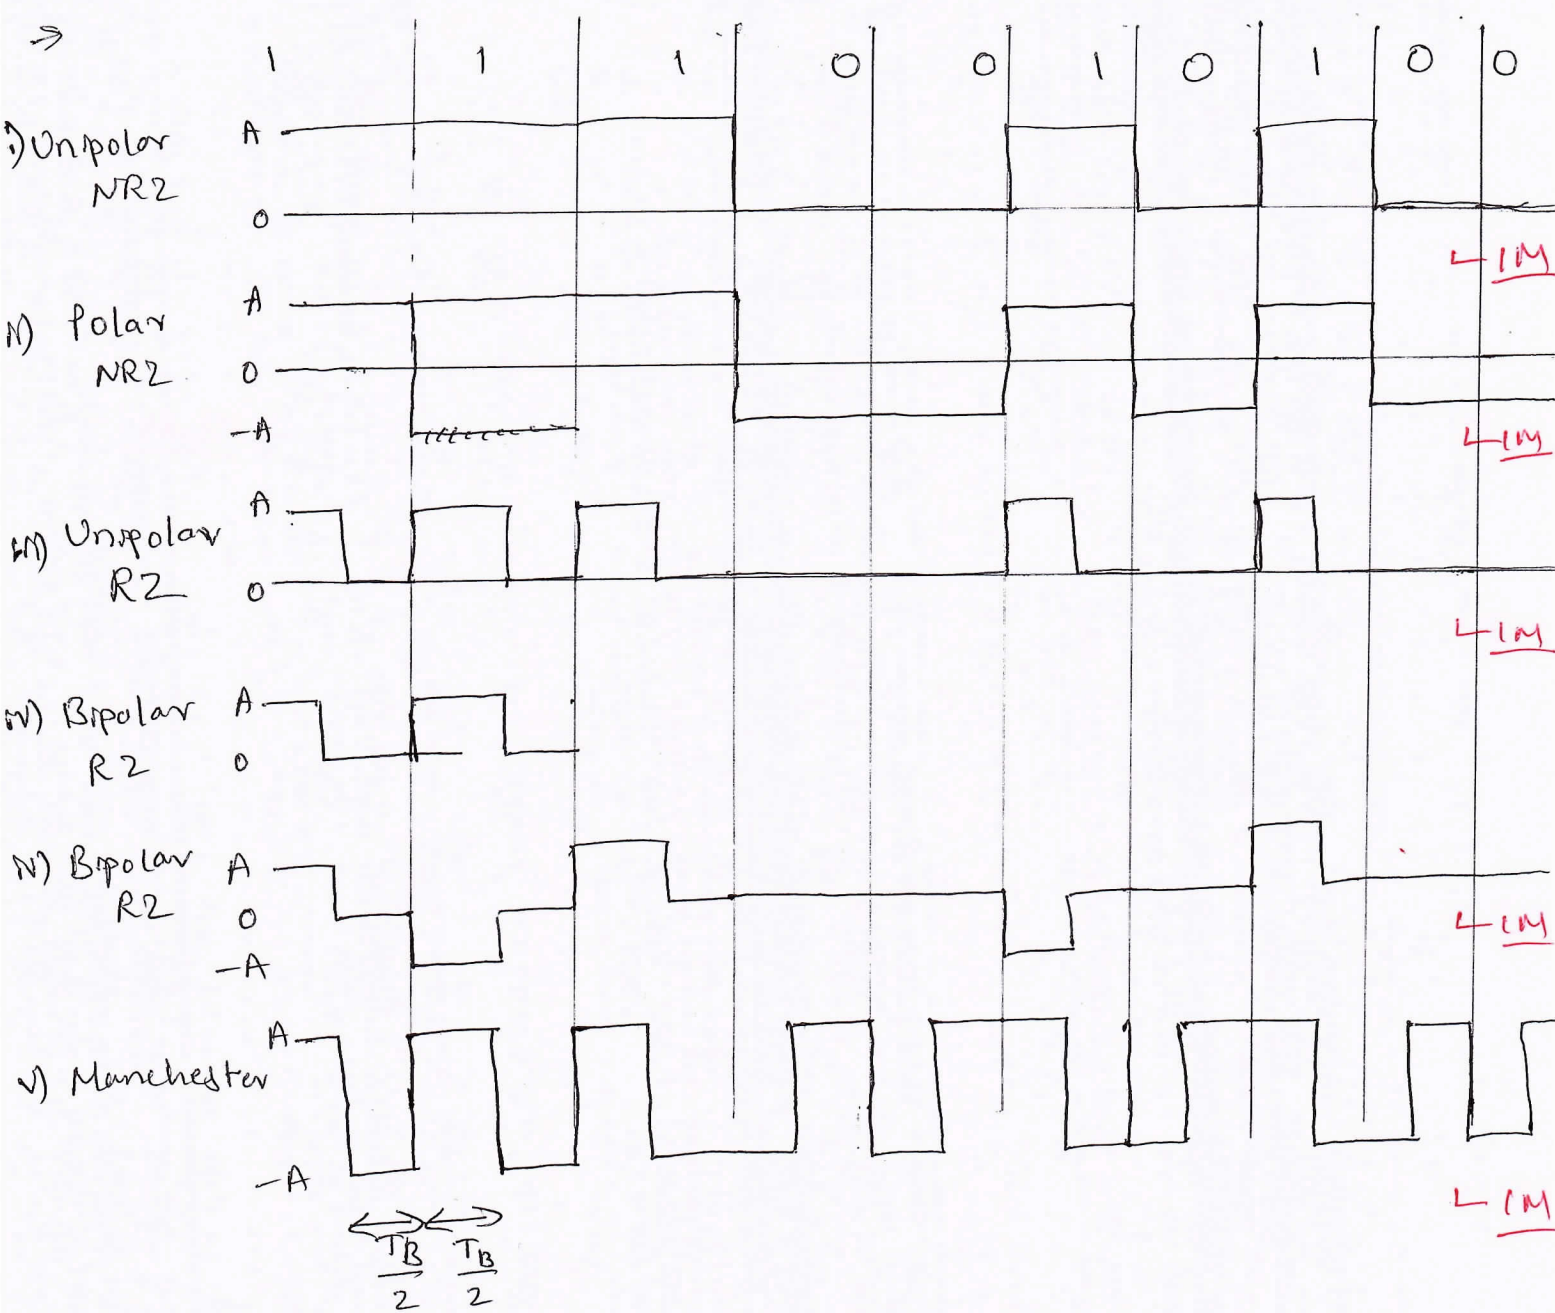 →
1 1 1 0 0 1 0 1 0 0
i) Unipolar A
NRZ
0
1M
ii) Polar A
NRZ 0
-A
1M
iii) Unipolar A
RZ 0
1M
iv) Bipolar A
RZ 0
iv) Bipolar A
RZ 0
-A
1M
v) Manchester A
-A
1M
TB/2 TB/2